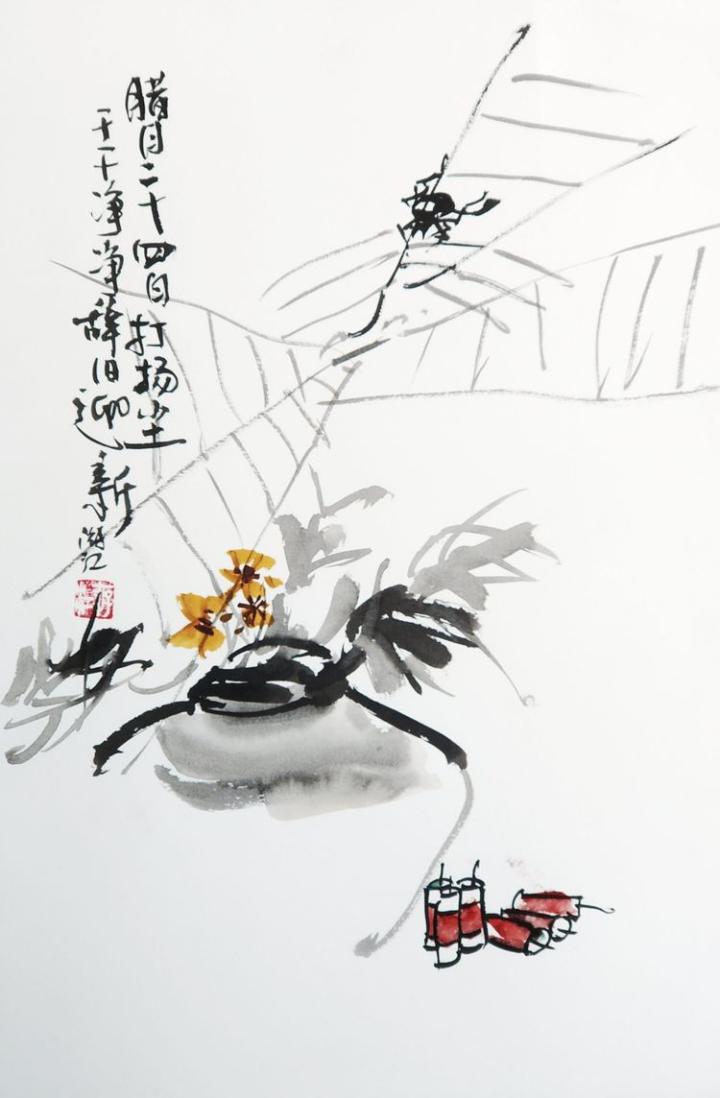 腊月二十四日打扬尘
干干净净辞旧迎新